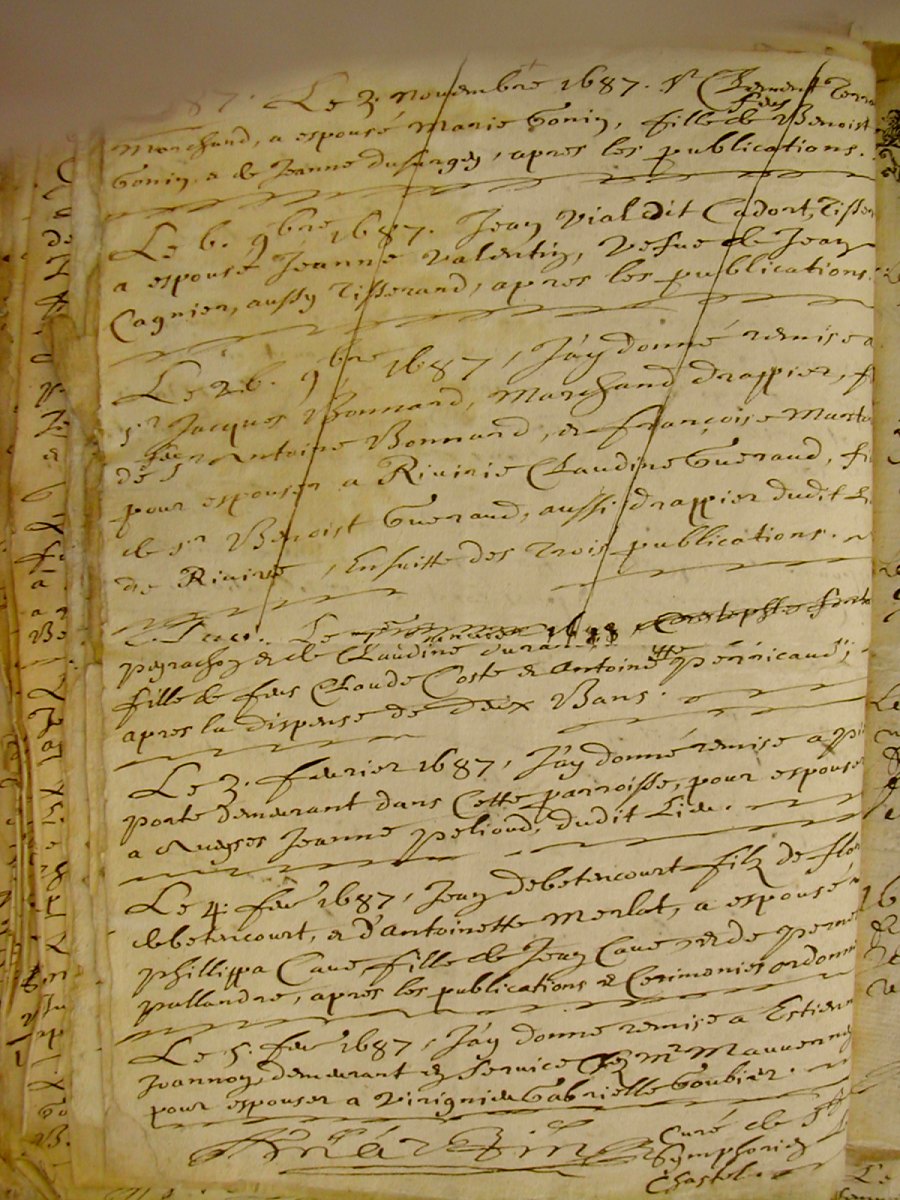 87. Le 3. Novembre 1687. Sr Clement Terra
feus
Marchand, a espousé Marie Gonin, fille de Benoist
Gonin, & de Jeanne, apres les publications.
Le 6. 9bre 1687. Jean Vial dit Cadort, Tisser
a espousé Jeanne Valentin, Vefue de Jean
Cagnier, aussy Tisserand, apres les publications.
Le 26. 9bre 1687, J'ay donné remise a
sr Jacques Bonnard, Marchand drappier, f
de feu Antoine Bonnard, & françoise
pour espouser a Riuirie Claudine Gueraud, fi
de sr Benoist Gueraud, aussi drappier dudit Li
de Riuirie, Ensuitte des trois publications.
Le
& de Claudine
fille de feus Claude Coste & Antoinette Perricaud;
apres la dispense de deux Bans.
Le 3. feurier 1687, J'ay donné remise a pi
porte demeurant dans Cette parroisse, pour espouser
a Jeanne Pelioud, dudit Lieu.
Le 4. feur 1687, Jean debetencourt filz de flor
debetencourt, & d'Antoinette Merlat, a espousé
Phillippa Caue, fille de Jean Caue & de Perne
pallandre, apres les publications & Cerimonies ordonn
Le 5. feur 1687, J'ay donne remise a Estienn
Joannon, demeurant en seruice Chez Mr
pour espouser a Virignieu Gabrielle Goubier.
Curé de St
Symphorien
Chastel